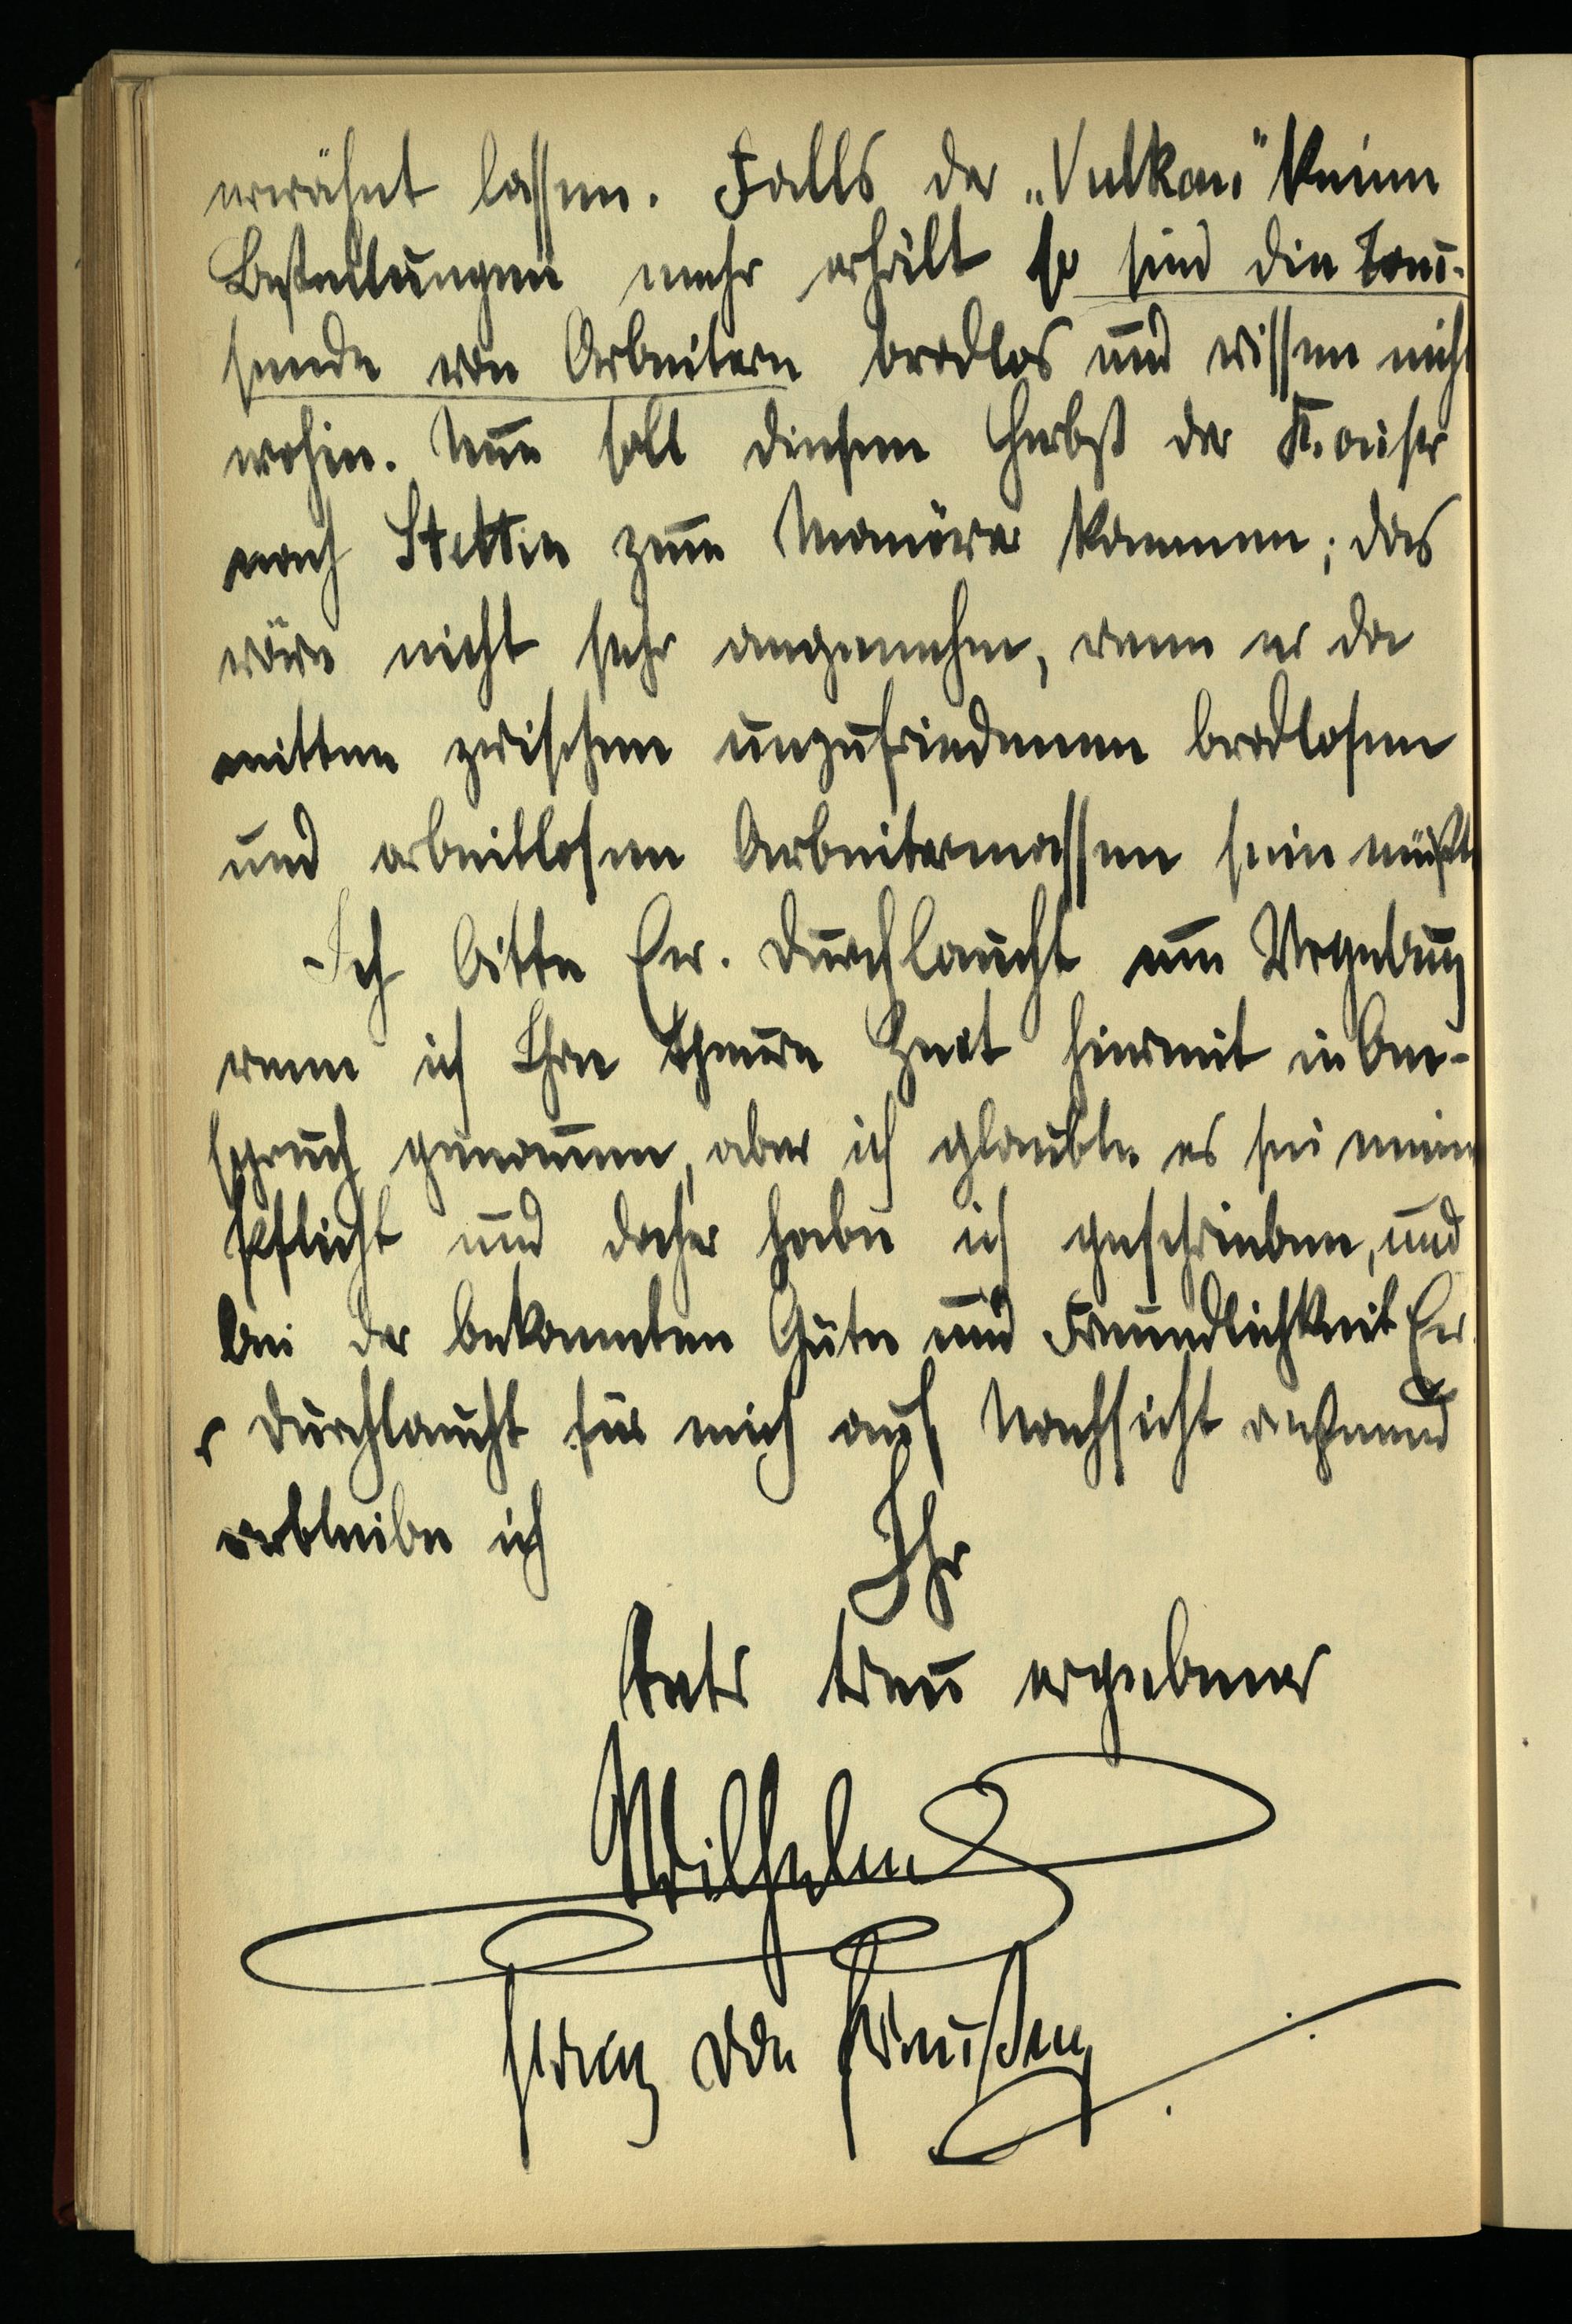 erwähnt lassen. Falls der „Vulkan" keine
Bestellungen mehr erhält so sind die Tau-
sende von Arbeitern brodlos und wissen nicht
wohin. Nun soll diesen Herbst der Kaiser
nach Stettin zum Manöver kommen; das
wäre nicht sehr angenehm, wenn er da
mitten zwischen unzufriedenen brodlosen
und arbeitlosen Arbeitermassen sein müßte
Ich bitte Ew. Durchlaucht um Vergebung
wenn ich Ihre theure Zeit hiermit in An-
spruch genommen, aber ich glaubte es sei meine
Pflicht und daher habe ich geschrieben, und
bei der bekannten Güte und Freundlichkeit Ew.
Durchlaucht für mich auf Nachsicht rechnend
verbleibe ich
Ihr
stets treu ergebener
Wilhelm
Prinz von Preußen